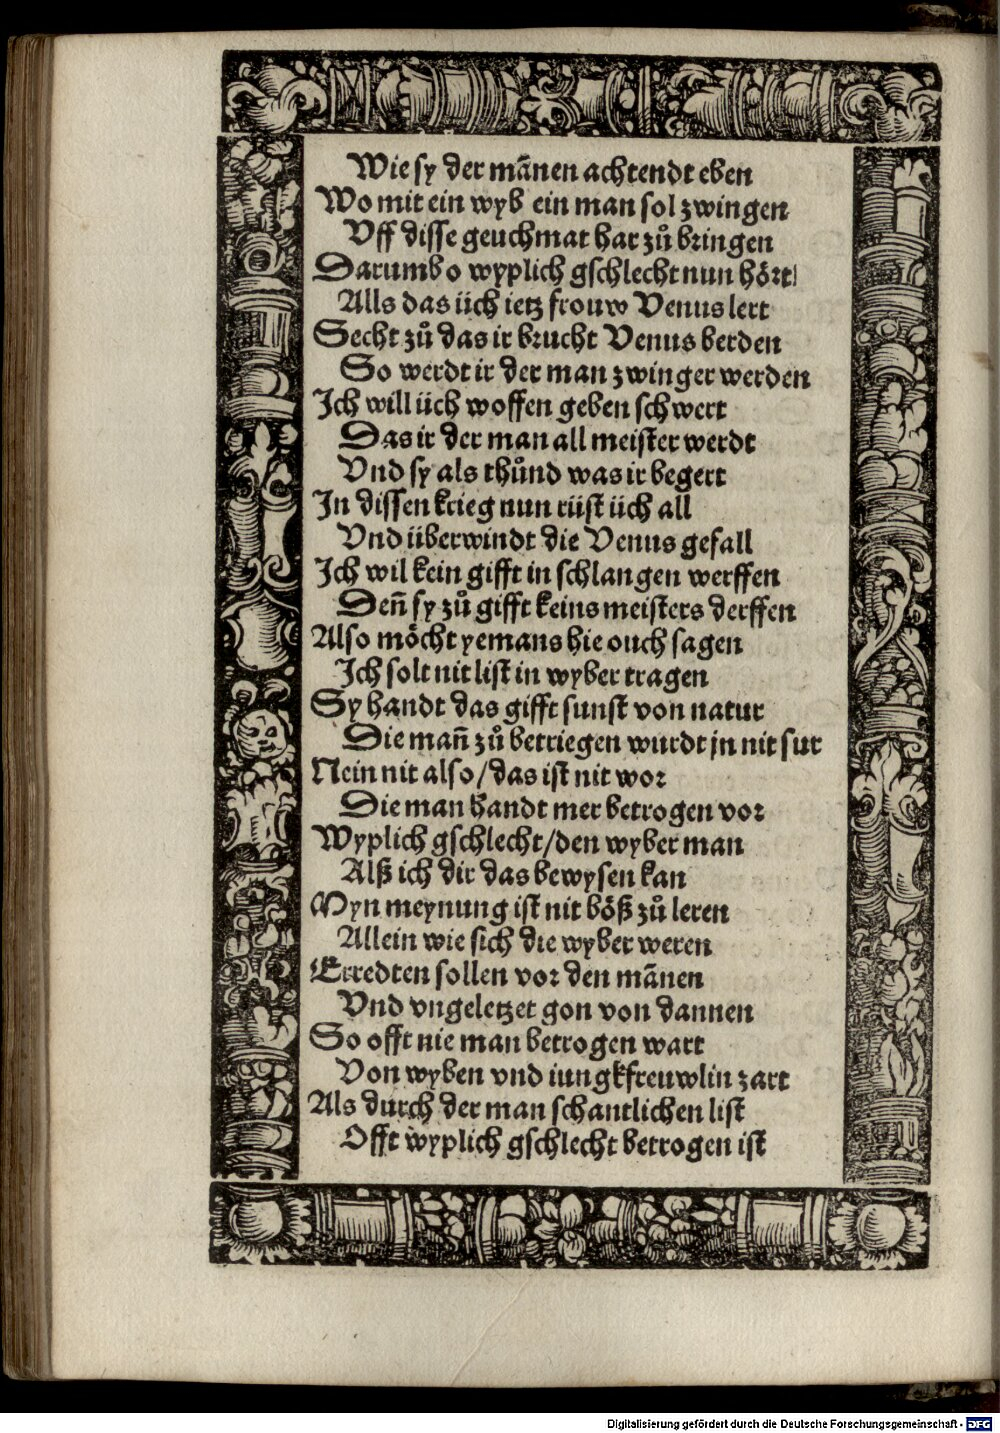 Wie sy der mãnen achtendt eben
Wo mit ein wyb ein man sol zwingen
Vff disse geuchmat har zů bringen
Darumb o wyplich gschlecht nun hört
Alls das üch ietz frouw Venus lert
Secht zů das ir brucht Venus berden
So werdt ir der man zwinger werden
Ich will üch woffen geben schwert
Das ir der man all meister werdt
Vnd sy als thůnd was ir begert
In dissen krieg nun rüst üch all
Vnd überwindt die Venus gefall
Ich wil kein gifft in schlangen werffen
Den̄ sy zů gifft keins meisters derffen
Also möcht yemans hie ouch sagen
Ich solt nit list in wyber tragen
Sy handt das gifft sunst von natur
Die man̄ zů betriegen wurdt jn nit sur
Nein nit also/das ist nit wor
Die man handt mer betrogen vor
Wyplich gschlecht/den wyber man
Alß ich dir das bewysen kan
Myn meynung ist nit böß zů leren
Allein wie sich die wyber weren
Erredten sollen vor den mãnen
Vnd vngeletzet gon von dannen
So offt nie man betrogen wart
Von wyben vnd iungkfreuwlin zart
Als durch der man schantlichen list
Offt wyplich gschlecht betrogen ist
Digitalisierung gefördert durch die Deutsche Forschungsgemeinschaft - DFG